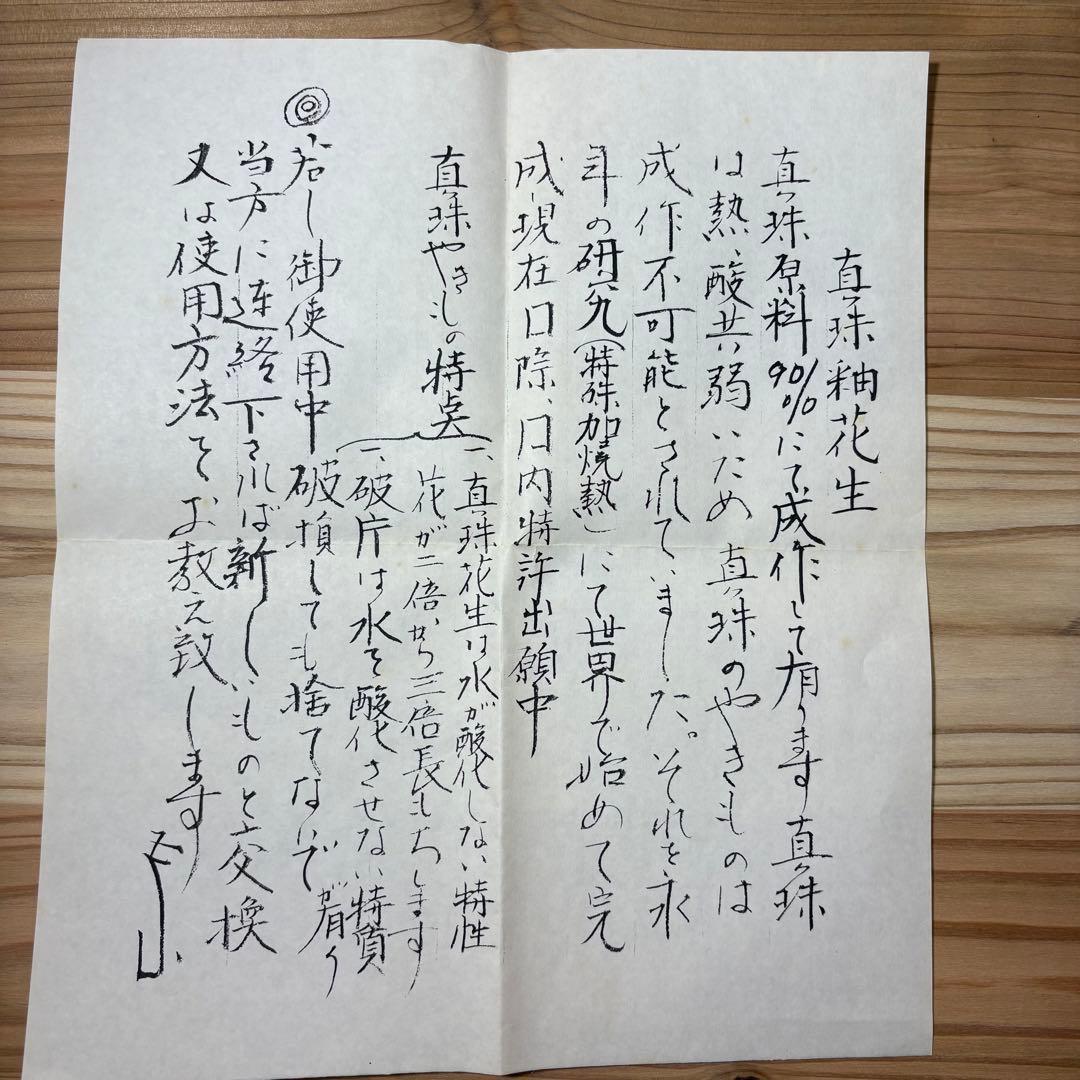 真珠釉花生
真珠原料90%にて成作して有ります真珠
は熱、酸共弱いため真珠のやきものは
成作不可能とされていました。それを永
年の研究(特殊加焼熱)にて世界で始めて完
成現在口際、口内特許出願中
真珠やきもの特点
一、真珠花生は水が酸化しない特性
花が二倍から三倍長もちします
一、破片は水を酸化させない特質
が有り
◎若し御使用中破損しても捨てないで
当方に連絡下されば新しいものと交換
又は使用方法をお教え致します